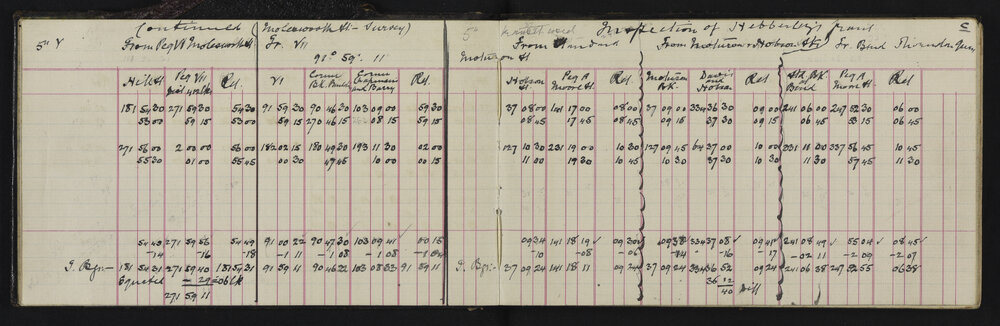 Continued (Molesworth St - Survey)
5" Y From Peg VI Molesworth St Fr. VII
91° 59' 11
Hill St Peg VII Rel. VI Corner Bk. Corner Chapman and Barry Rel.
181 54 30 271 59 30 54 30 91 59 30 90 46 30 103 09 00 59 30
53 00 59 15 53 00 59 15 270 46 15 08 15 59 15
271 56 00 2 00 00 56 00 182 02 15 180 49 30 193 11 30 02 00
55 30 01 00 55 45 00 30 47 45 10 00 00 15
54 45 271 59 56 54 49 91 00 22 90 47 30 103 09 41 00 15
-14 -16 -18 -1 11 -1 08 -1 08 -1 04
J. Bgs:- 181 54 31 271 59 40 181 54 31 91 59 11 90 46 22 103 08 33 91 59 11
- 29 = 06 lk
271 59 11
5" Inspection of Hebberley's grant C
From Standard From Moturoa & Hobson Sts Fr. Bend Thorndon Quay
Moturoa St
Hobson St Peg A Moore St Rel Moturoa Bk. Davis and Hobson Rel Std Bk Bend Peg A Moore St Rel
37 08 00 141 17 00 08 00 37 09 00 334 36 30 09 00 241 06 00 247 52 30 06 00
08 45 17 45 08 45 09 15 37 30 09 15 06 45 53 15 06 45
127 10 30 231 19 00 10 30 127 09 45 64 37 00 10 00 331 11 00 337 56 45 10 45
11 00 19 30 10 45 10 30 37 30 10 30 11 30 57 45 11 30
09 34 141 18 19 09 30 09 38 334 37 08 09 41 241 08 49 55 04 08 45
-10 -08 -06 -14 -16 -17 -02 11 -2 09 -2 07
J. Bgs:- 37 09 24 141 18 11 09 24 37 09 24 334 36 52 09 24 241 06 38 247 52 55 06 38
36 12
40 Diff